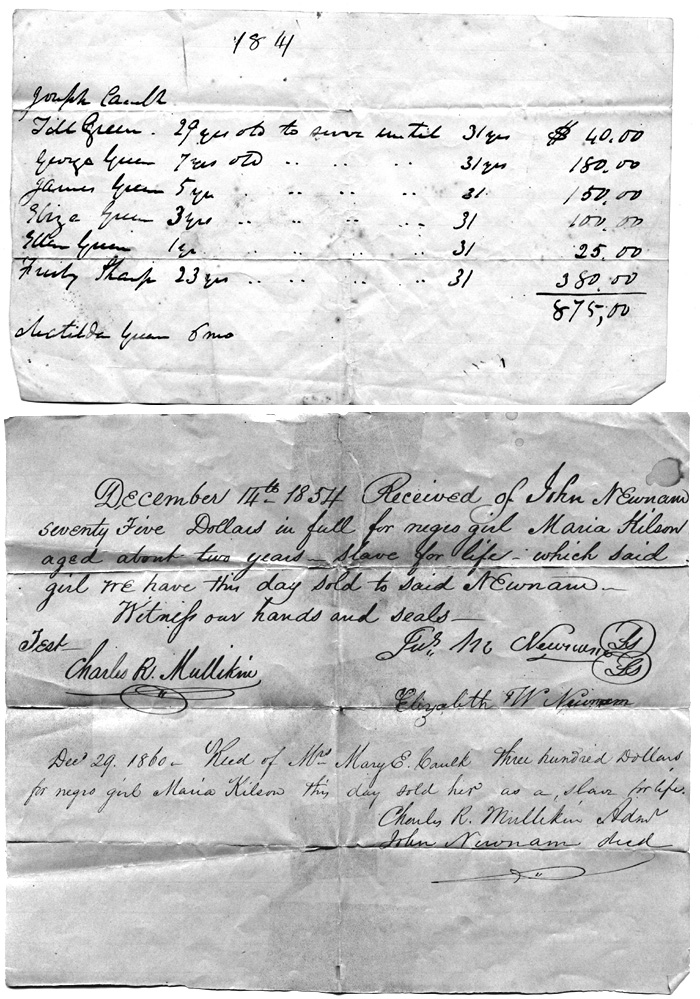 1841
Joseph Caulk
Till Green. 29 yrs old to serve until 31 yrs $ 40.00
George Green 7 yrs old .. .. .. 31 yrs 180.00
James Green 5 yr .. .. .. .. 31 150.00
Eliza Green 3 yrs .. .. .. .. 31 100.00
Ellen Green 1 yr .. .. .. .. 31 25.00
Frisby Sharp 23 yrs .. .. .. .. 31 380.00
875,00
Matilda Green 6 mo
December 14th 1854 Received of John Newnam
seventy Five Dollars in full for negro girl Maria Kilson
aged about two years – slave for life – which said
girl we have this day sold to said Newnam –
Witness our hands and seals –
Test
Charles R. Mullikin
Newnam Ls
Ls
Elizabeth W Newnam
Decr 29. 1860 – Recd of Mrs Mary E. Caulk three hundred Dollars
for negro girl Maria Kilson this day sold her as a slave for life.
Charles R. Mullikin Admr
John Newnam decd